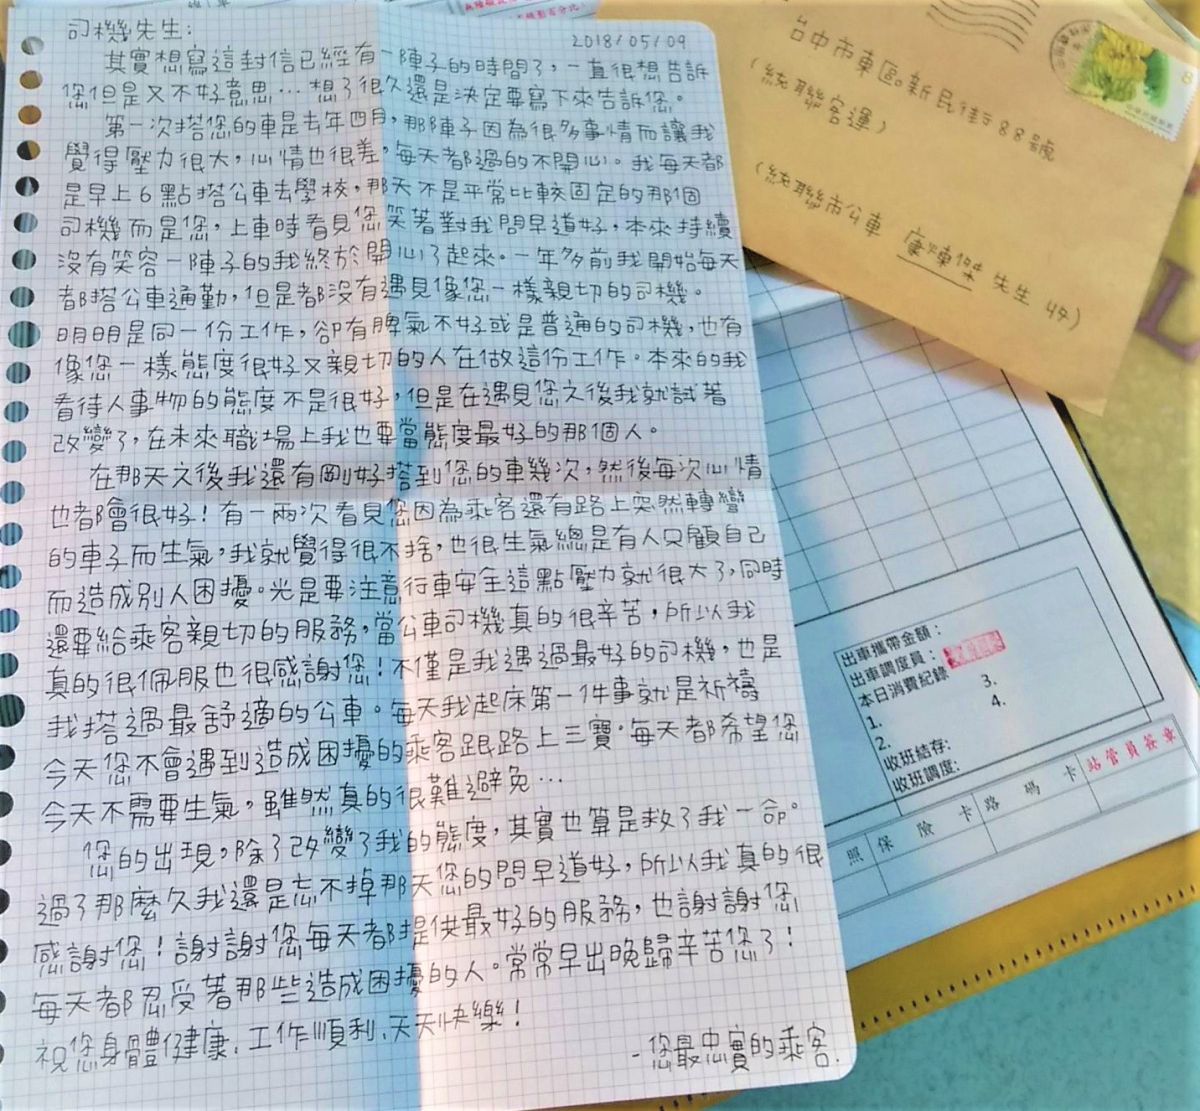 司機先生：
2018/05/09
其實想寫這封信已經有一陣子的時間了，一直很想告訴
您但是又不好意思…想了很久還是決定要寫下來告訴您。
第一次搭您的車是去年四月，那陣子因為很多事情而讓我
覺得壓力很大，心情也很差，每天都過的不開心。我每天都
是早上6點搭公車去學校，那天不是平常比較固定的那個
司機而是您，上車時看見您笑著對我問早道好，本來持續
沒有笑容一陣子的我終於開心了起來。一年多前我開始每天
都搭公車通勤，但是都沒有遇見像您一樣親切的司機。
明明是同一份工作，卻有脾氣不好或是普通的司機，也有
像您一樣態度很好又親切的人在做這份工作。本來的我
看待人事物的態度不是很好，但是在遇見您之後我就試著
改變了，在未來職場上我也要當態度最好的那個人。
在那天之後我還有剛好搭到您的車幾次，然後每次心情
也都會很好！有一兩次看見您因為乘客還有路上突然轉彎
的車子而生氣，我就覺得很不捨，也很生氣總是有人只顧自己
而造成別人困擾。光是要注意行車安全這點壓力就很大了，同時
還要給乘客親切的服務，當公車司機真的很辛苦，所以我
真的很佩服也很感謝您！不僅是我遇過最好的司機，也是
我搭過最舒適的公車。每天我起床第一件事就是祈禱
今天您不會遇到造成困擾的乘客跟路上三寶。每天都希望您
今天不需要生氣，雖然真的很難避免…
您的出現，除了改變了我的態度，其實也算是救了我一命。
過了那麼久我還是忘不掉那天您的問早道好，所以我真的很
感謝您！謝謝您每天都提供最好的服務，也謝謝您
每天都忍受著那些造成困擾的人。常常早出晚歸辛苦您了！
祝您身體健康、工作順利、天天快樂！
-您最忠實的乘客.
台中市東區新民街88號
(統聯客運)
(統聯市公車 先生 收)
8
出車攜帶金額：
出車調度員：
本日消費紀錄
1.
2.
3.
4.
收班結存:
收班調度:
照 保 險 卡 路 碼 卡 站管員簽章